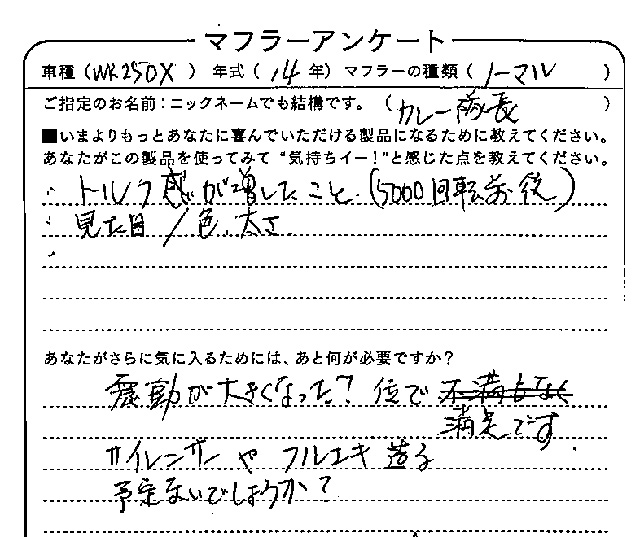 マフラーアンケート
車種(WR250X) 年式(14年) マフラーの種類(ノーマル)
ご指定のお名前:ニックネームでも結構です。(カレー隊長)
■いまよりもっとあなたに喜んでいただける製品になるために教えてください。
あなたがこの製品を使ってみて“気持ちイー!”と感じた点を教えてください。
・トルク感が増したこと(5000回転前後)
・見た目/色、太さ
・
あなたがさらに気に入るためには、あと何が必要ですか?
震動が大きくなった?位で 不満もなく
満足です.
サイレンサーやフルエキ造る
予定ないでしょうか?